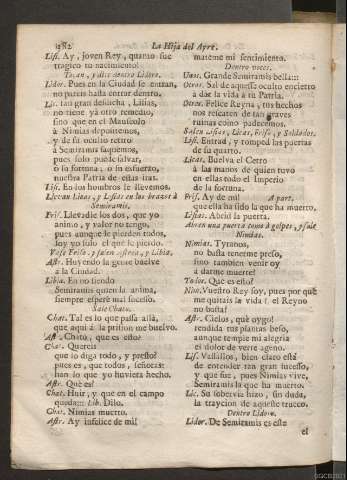 282 La Hija del Ayre.
Lis. Ay, Joven Rey, quanto fue
tragico tu nacimiento!
Tocan, y dice dentro Lidoro.
Lidor. Pues en la Ciudad se entran,
no pareis hasta entrar dentro.
Lic. tan gran desdicha, Lisias,
no tiene ya otro remedio,
sino que en el Mausoleo
à Ninias depositemos,
y de su oculto retiro
à Semiramis saquemos,
pues solo puede salvar,
ò su fortuna, ò su esfuerzo,
nuestra Patria de estas iras.
Lis. En los hombros le llevemos.
Llevan Licas, y Lisias en los brazos à
Semiramis.
Fris. Llevadle los dos, que yo
animo, y valor no tengo,
pues aunque le pierden todos,
soy yo solo el que le pierdo.
Vase Friso, y salen Astrea, y Libia.
Astr. Huyendo la gente buelve
à la Ciudad.
Libia. En no siendo
Semiramis quien la anima,
siempre esperè mal sucesso.
Sale Chato.
Chat. Tal es lo que passa allà,
que aqui à la prision me buelvo.
Astr. Chato, què es esto?
Chat. Quereis
que lo diga todo, y presto?
pues es, que todos, señoras:
han lo que yo huviera hecho.
Astr. Què es?
Chat. Huir, y que en el campo
queda::: Lib. Dilo.
Chat. Ninias muerto.
Astr. Ay infelice de mi!
mateme mi sentimiento.
Dentro voces.
Unos. Grande Semiramis bella:::
Otros. Sal de aquesse oculto encierro
à dar la vida à tu Patria.
Otros. Felice Reyna, tus hechos
nos rescaten de tan graves
ruinas como padecemos.
Salen Lisias, Licas, Friso, y Soldados.
Lis. Entrad, y romped las puertas
de su quarto.
Licas. Buelva el Cetro
à las manos de quien tuvo
en ellas todo el Imperio
de la fortuna.
Fris. Ay de mi! A part.
que ella ha sido la que ha muerto.
Lisias. Abrid la puerta.
Abren una puerta como à golpes, y sale
Ninias.
Ninias. Tyranos,
no basta tenerme preso,
sino tambien venir oy
à darme muerte!
Todos. Què es esto?
Nin. Vuestro Rey soy, pues por què
me quitais la vida? el Reyno
no basta?
Astr. Cielos, què oygo!
rendida tus plantas beso,
aunque temple mi alegria
el dolor de verte ageno.
Lis. Vassallos, bien claro està
de entender tan gran sucesso,
y que fue, pues Ninias vive,
Semiramis la que ha muerto.
Lic. Su sobervia hizo, sin duda,
la traycion de aqueste trueco.
Dentro Lidoro.
Lidor. De Semiramis es este
el